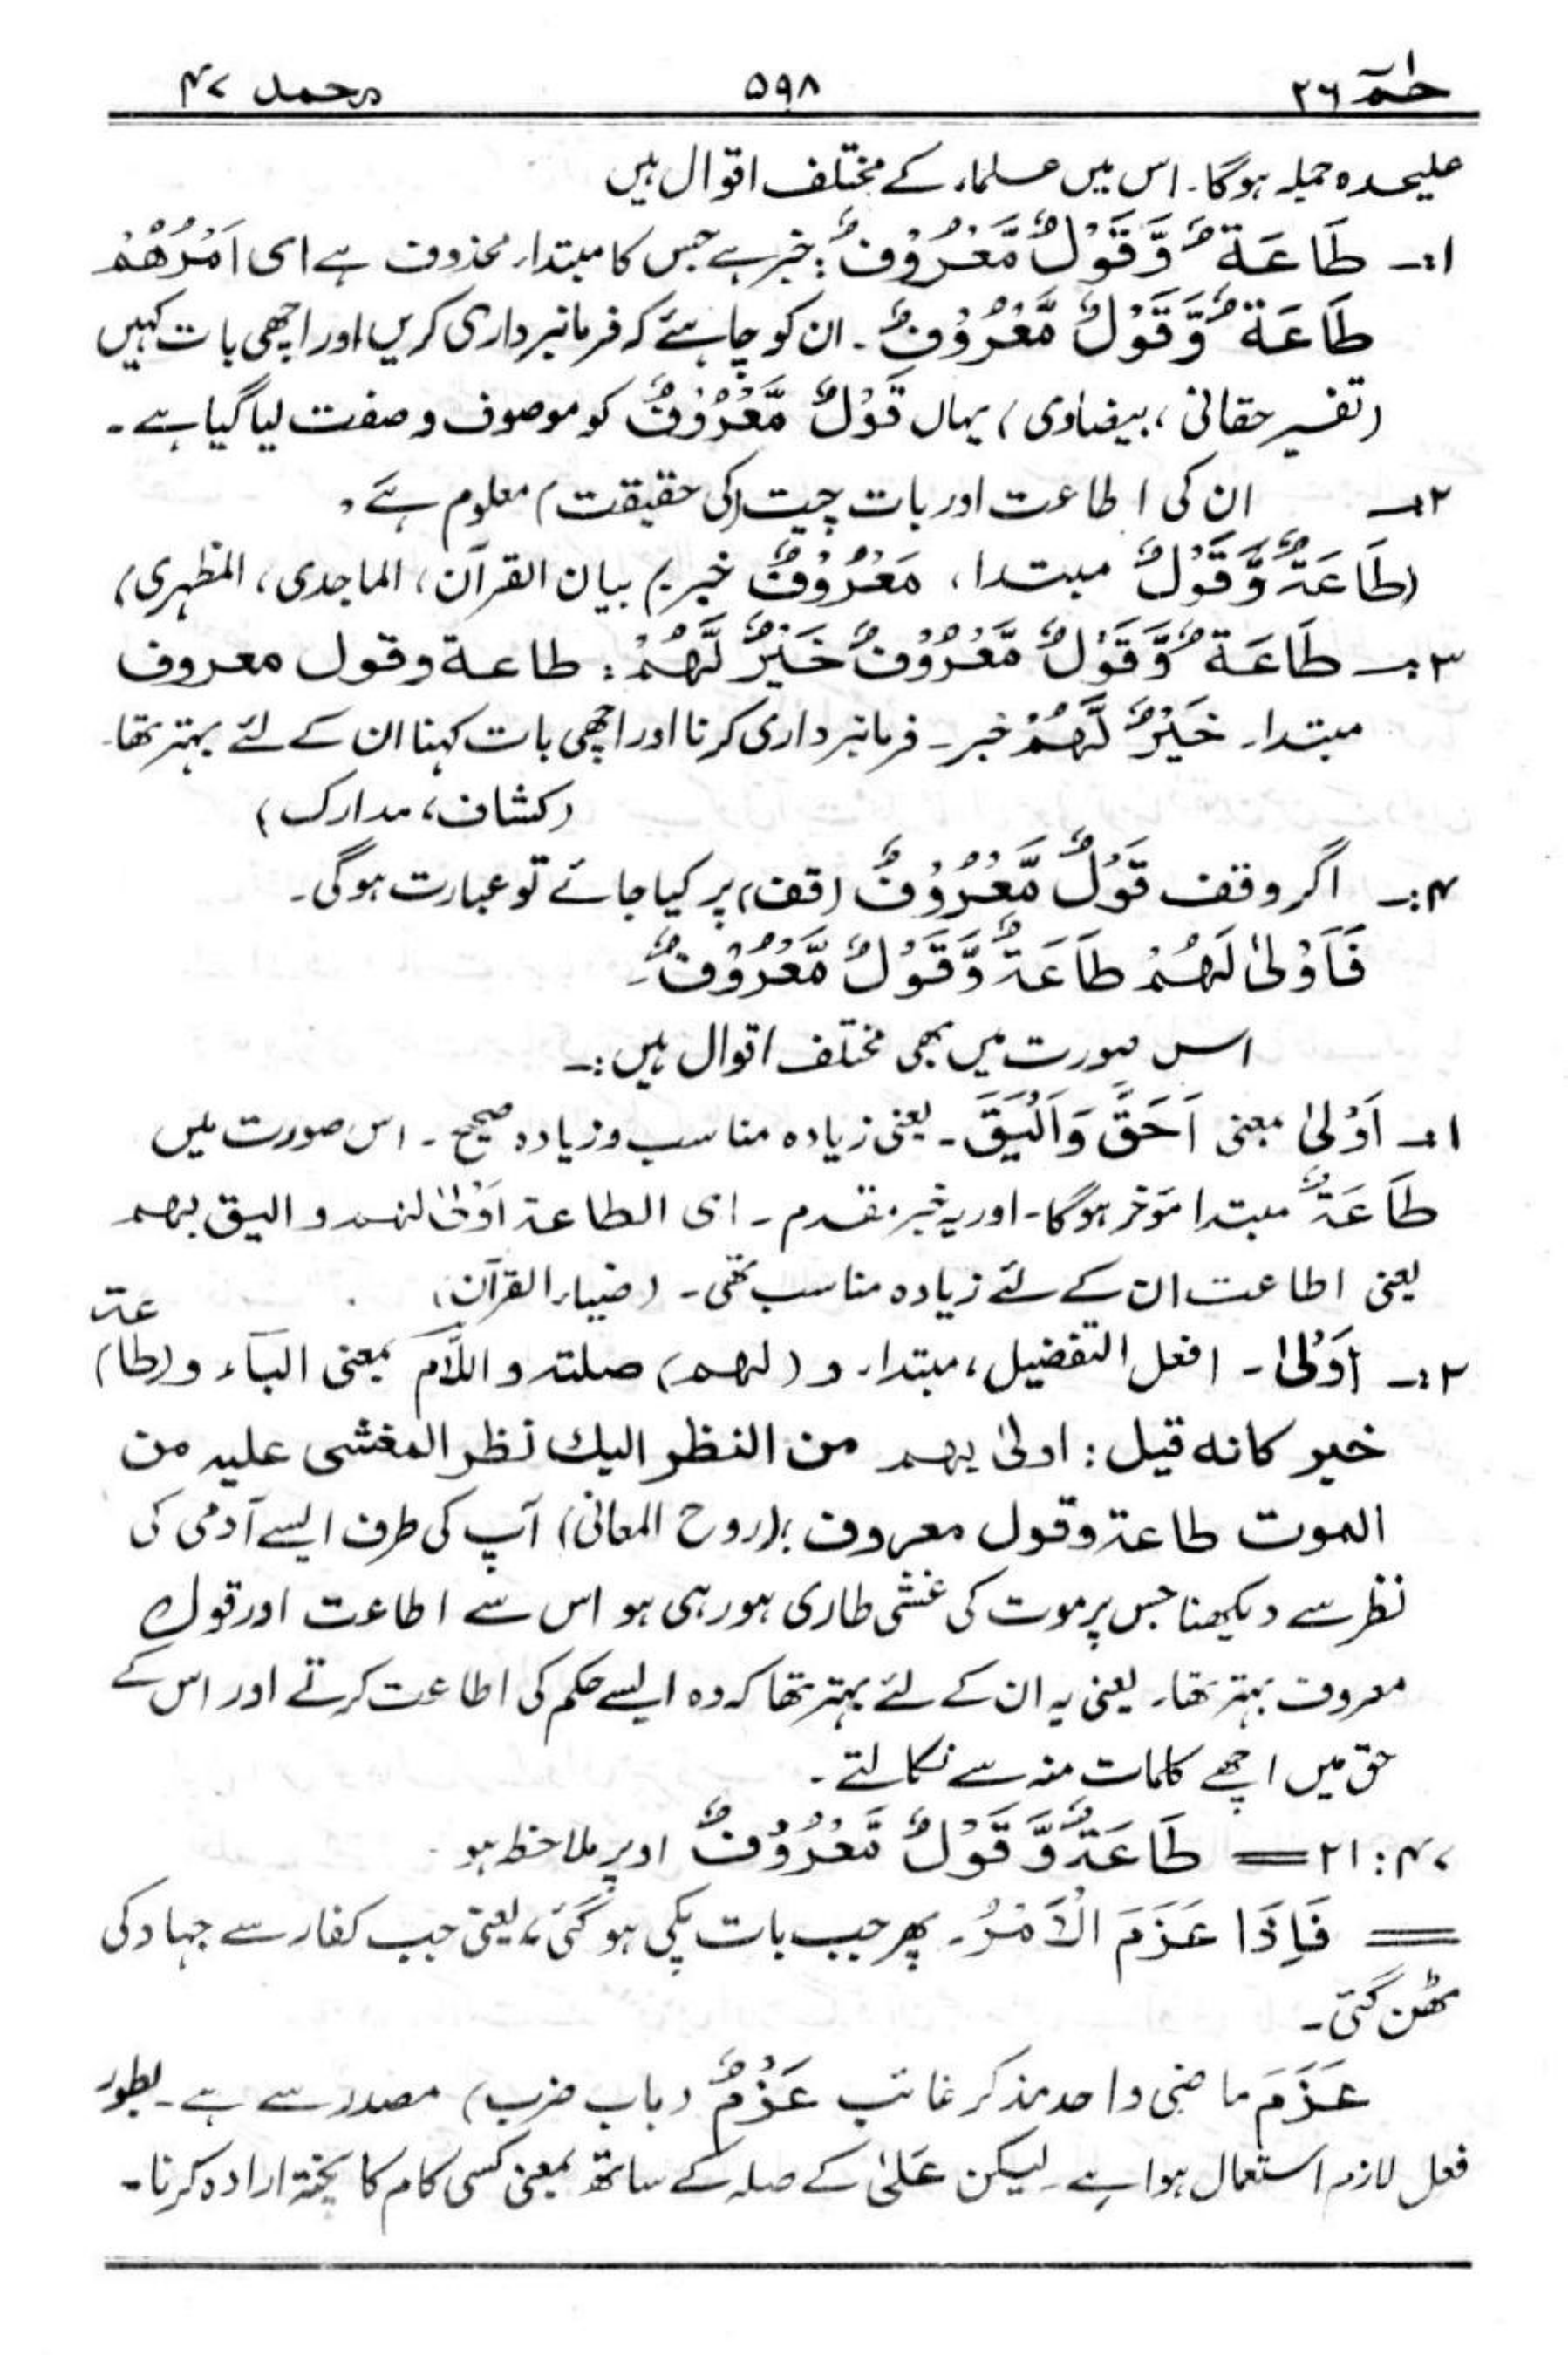 حٰمٓ ٢٦ ٥٩٨ محمد ٤٧
علیحدہ جملہ ہوگا۔ اس میں علماء کے مختلف اقوال ہیں
۱:۔ طَاعَةٌ وَّقَوْلٌ مَّعْرُوْفٌ: خبر ہے جس کا مبتداء محذوف ہے ای اَمْرُهُمْ
طَاعَةٌ وَّقَوْلٌ مَّعْرُوْفٌ۔ ان کو چاہئے کہ فرمانبرداری کریں اور اچھی بات کہیں
(تفسیر حقانی، بیضاوی) یہاں قَوْلٌ مَّعْرُوْفٌ کو موصوف و صفت لیا گیا ہے۔
۲:۔ ان کی اطاعت اور بات چیت (کی حقیقت) معلوم ہے،
(طَاعَةٌ وَّقَوْلٌ مبتدا، مَعْرُوْفٌ خبر) بیان القرآن، الماجدی، المظہری)
۳:۔ طَاعَةٌ وَّقَوْلٌ مَّعْرُوْفٌ خَيْرٌ لَّهُمْ: طاعة وقول معروف
مبتدا۔ خَيْرٌ لَّهُمْ خبر۔ فرمانبرداری کرنا اور اچھی بات کہنا ان کے لئے بہتر تھا۔
(کشاف، مدارک)
۴:۔ اگر وقف قَوْلٌ مَّعْرُوْفٌ (قف) پر کیا جائے تو عبارت ہوگی۔
فَاَوْلٰى لَهُمْ طَاعَةٌ وَّقَوْلٌ مَّعْرُوْفٌ۔
اس صورت میں بھی مختلف اقوال ہیں:۔
۱:۔ اَوْلٰى بمعنی اَحَقَّ وَاَلْيَقَ۔ یعنی زیادہ مناسب و زیادہ صحیح۔ اس صورت میں
طَاعَةٌ مبتدا مؤخر ہوگا۔ اور یہ خبر مقدم۔ ای الطاعة اَوْلٰى لهم و الیق بهم
یعنی اطاعت ان کے لئے زیادہ مناسب تھی۔ (ضیاء القرآن)
۲:۔ اَوْلٰى۔ افعل التفضیل، مبتداء و (لهم) صلته و اللّام بمعنی البآء و (طاعة)
خبر کانه قیل: اولیٰ بهم من النظر الیك نظر المغشی علیه من
الموت طاعة وقول معروف؛ (روح المعانی) آپ کی طرف ایسے آدمی کی
نظر سے دیکھنا جس پر موت کی غشی طاری ہو رہی ہو اس سے اطاعت اور قول
معروف بہتر تھا۔ یعنی یہ ان کے لئے بہتر تھا کہ وہ ایسے حکم کی اطاعت کرتے اور اس کے
حق میں اچھے کلمات منہ سے نکالتے۔
۴۷:۲۱ = طَاعَةٌ وَّقَوْلٌ مَّعْرُوْفٌ اوپر ملاحظہ ہو۔
= فَاِذَا عَزَمَ الْاَمْرُ۔ پھر جب بات پکی ہو گئی، یعنی جب کفار سے جہاد کی
ٹھن گئی۔
عَزَمَ ماضی واحد مذکر غائب عَزْمٌ (باب ضرب) مصدر سے ہے۔ بطور
فعل لازم استعمال ہوا ہے۔ لیکن عَلٰى کے صلہ کے ساتھ بمعنی کسی کام کا پختہ ارادہ کرنا۔